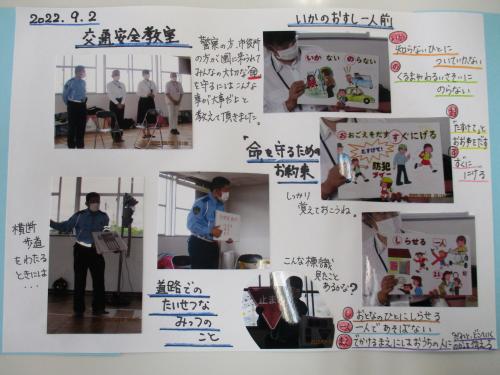 2022.9.2
交通安全教室
警察の方、市役所
の方が園に来られて
みんなの大切な命
を守るにはこんな
事が大事だよと
教えて頂きました。
いかのおすし一人前
いか
知らないひとに
ついていかない
の
くるまやわるいさそいに
のらない
いかない のらない
お
「たすけて」と
おお声をだす
す
すぐに
にげる
おおごえをだす すぐにげる
たすけて!
防犯
ブザー
"命を守るための
お約束
しっかり
覚えておこうね。
しらせる 一人
横断
歩道
をわたる
ときには
・・・
道路での
たいせつな
みっつの
こと
こんな標識
見たこと
あるかな?
止まれ
し おとなのひとにしらせる
一人 一人であそばない
まえ でかけるまえにはおうちの人に